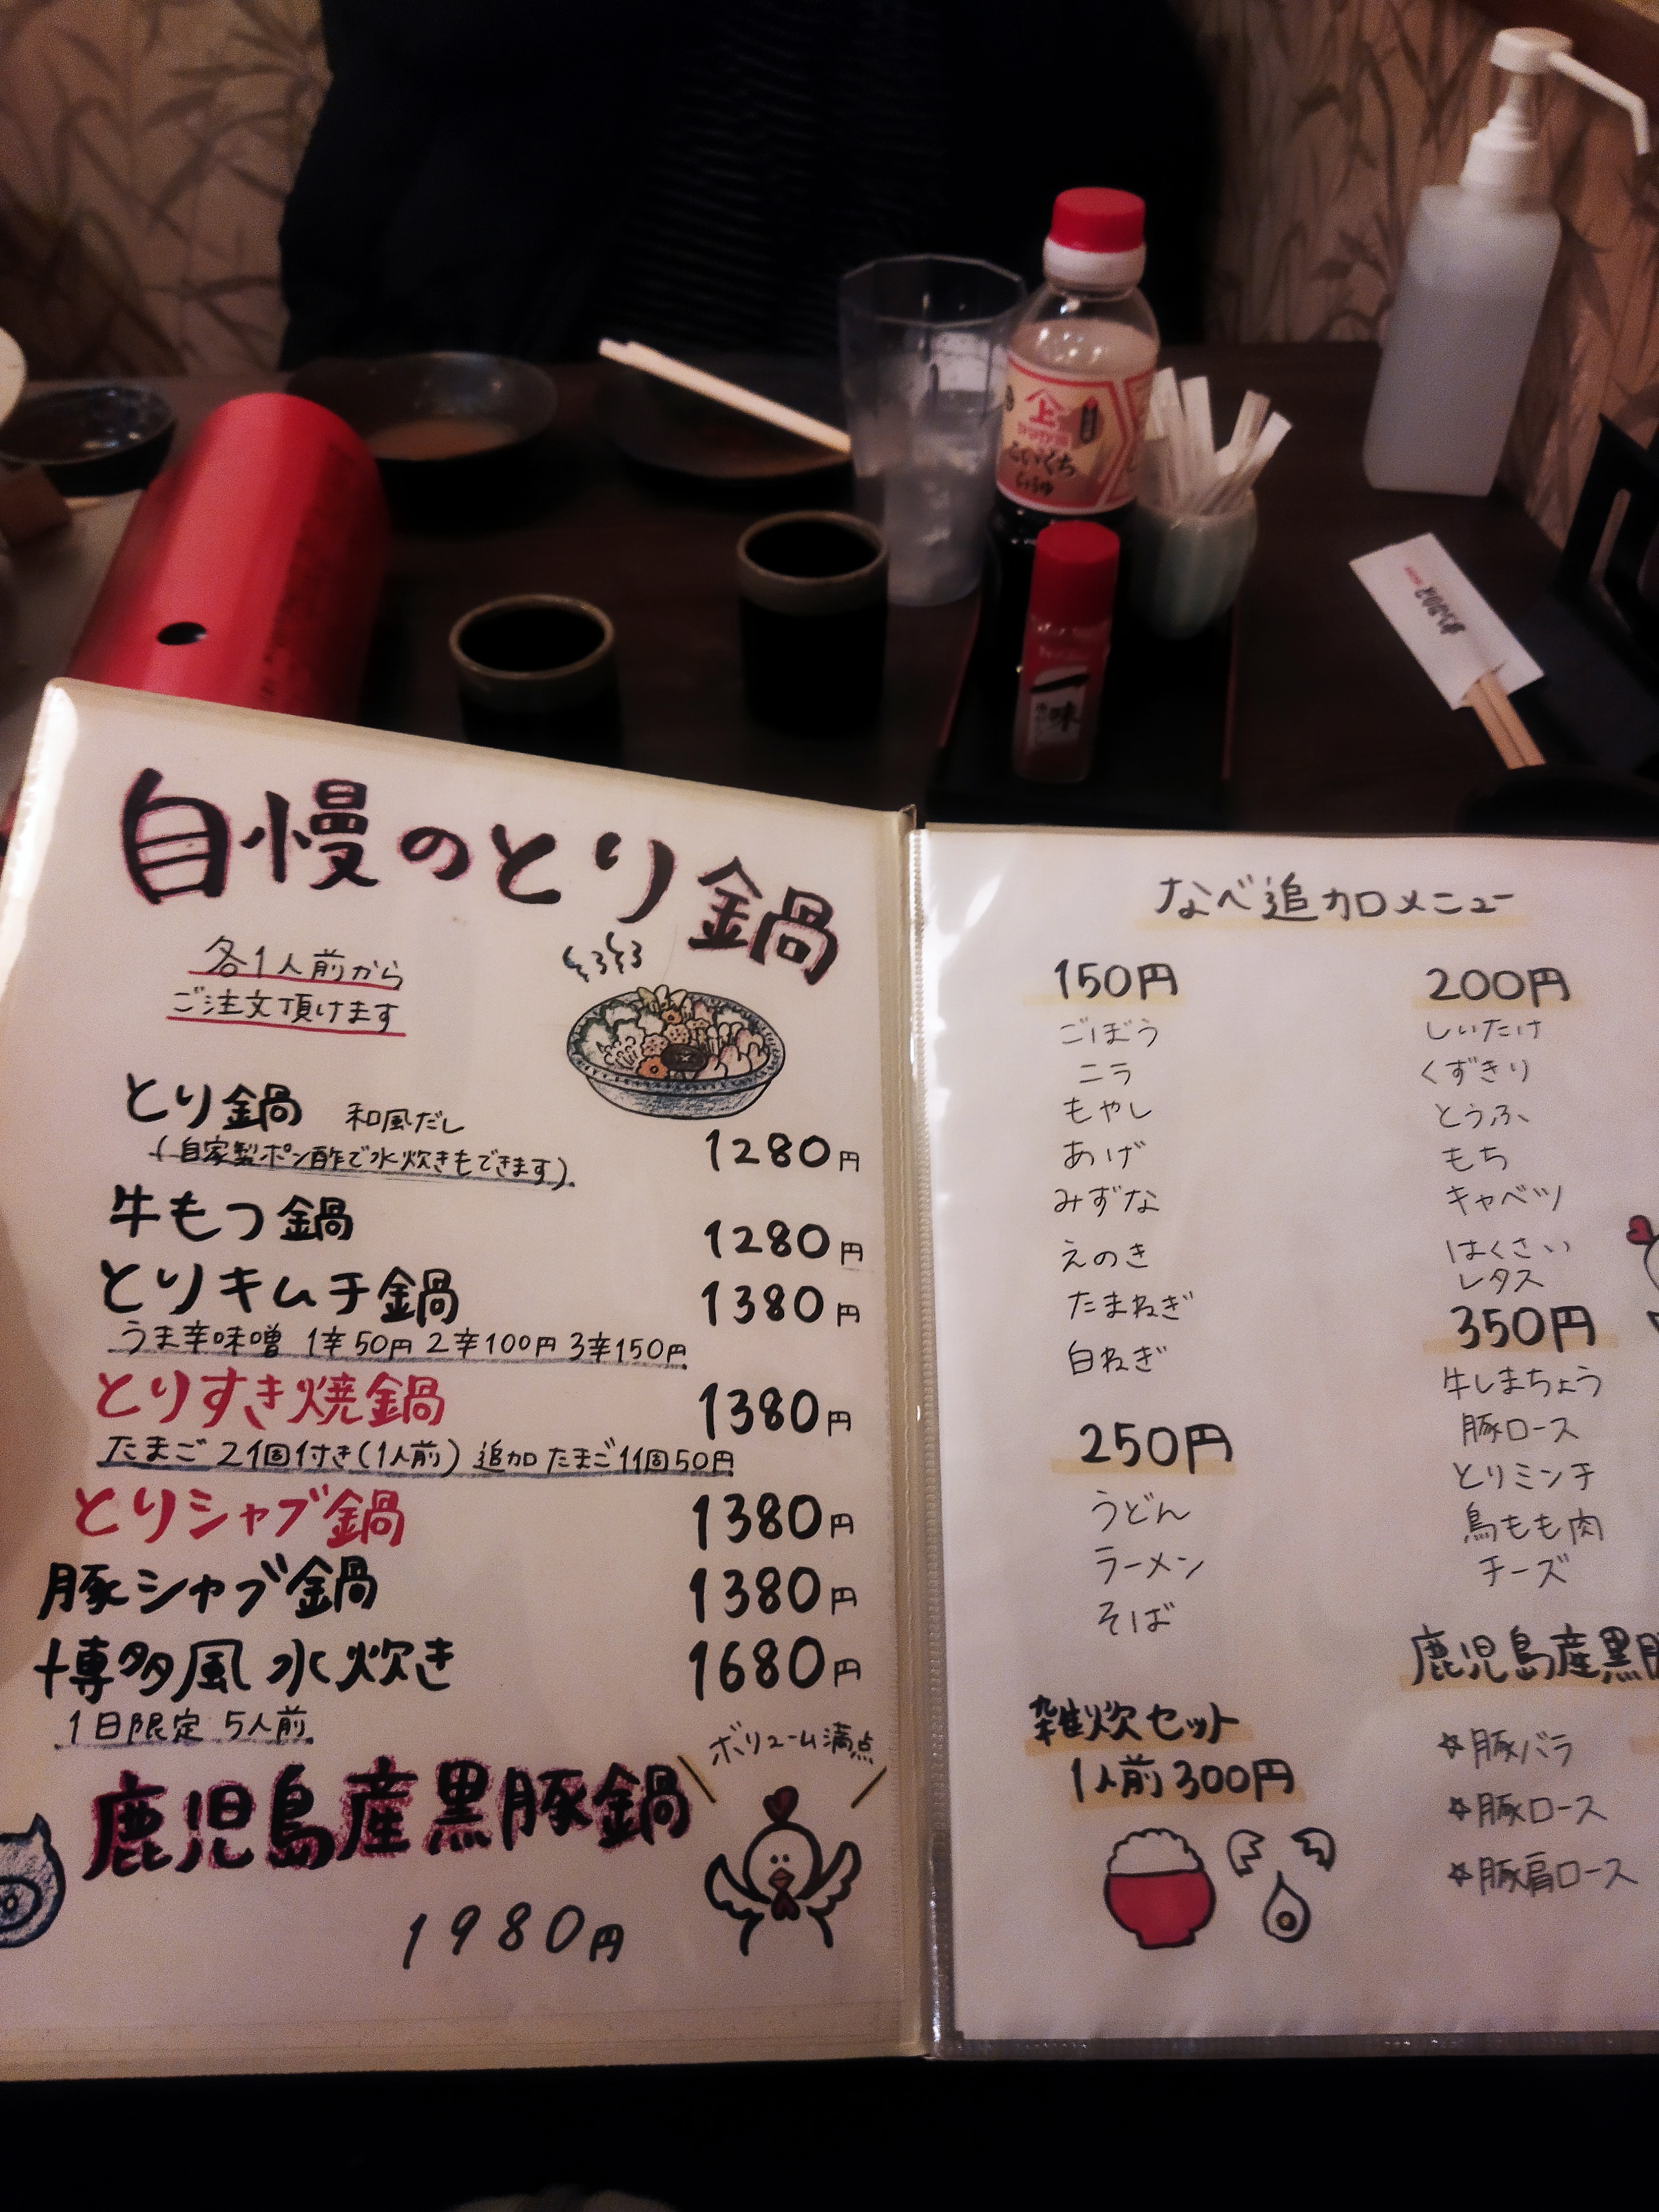 上
こいくち
しょうゆ
一味
自慢のとり鍋
各1人前から
ご注文頂けます
とり鍋 和風だし
(自家製ポン酢で水炊きもできます)
1280円
牛もつ鍋 1280円
とりキムチ鍋 1380円
うま辛味噌 1辛50円 2辛100円 3辛150円
とりすき焼鍋 1380円
たまご2個付き(1人前) 追加たまご1個50円
とりシャブ鍋 1380円
豚シャブ鍋 1380円
博多風水炊き 1680円
1日限定 5人前
ボリューム満点
鹿児島産黒豚鍋
1980円
なべ追加メニュー
150円
ごぼう
ニラ
もやし
あげ
みずな
えのき
たまねぎ
白ねぎ
250円
うどん
ラーメン
そば
雑炊セット
1人前300円
200円
しいたけ
くずきり
とうふ
もち
キャベツ
はくさい
レタス
350円
牛しまちょう
豚ロース
とりミンチ
鳥もも肉
チーズ
鹿児島産黒豚
☆豚バラ
☆豚ロース
☆豚肩ロース